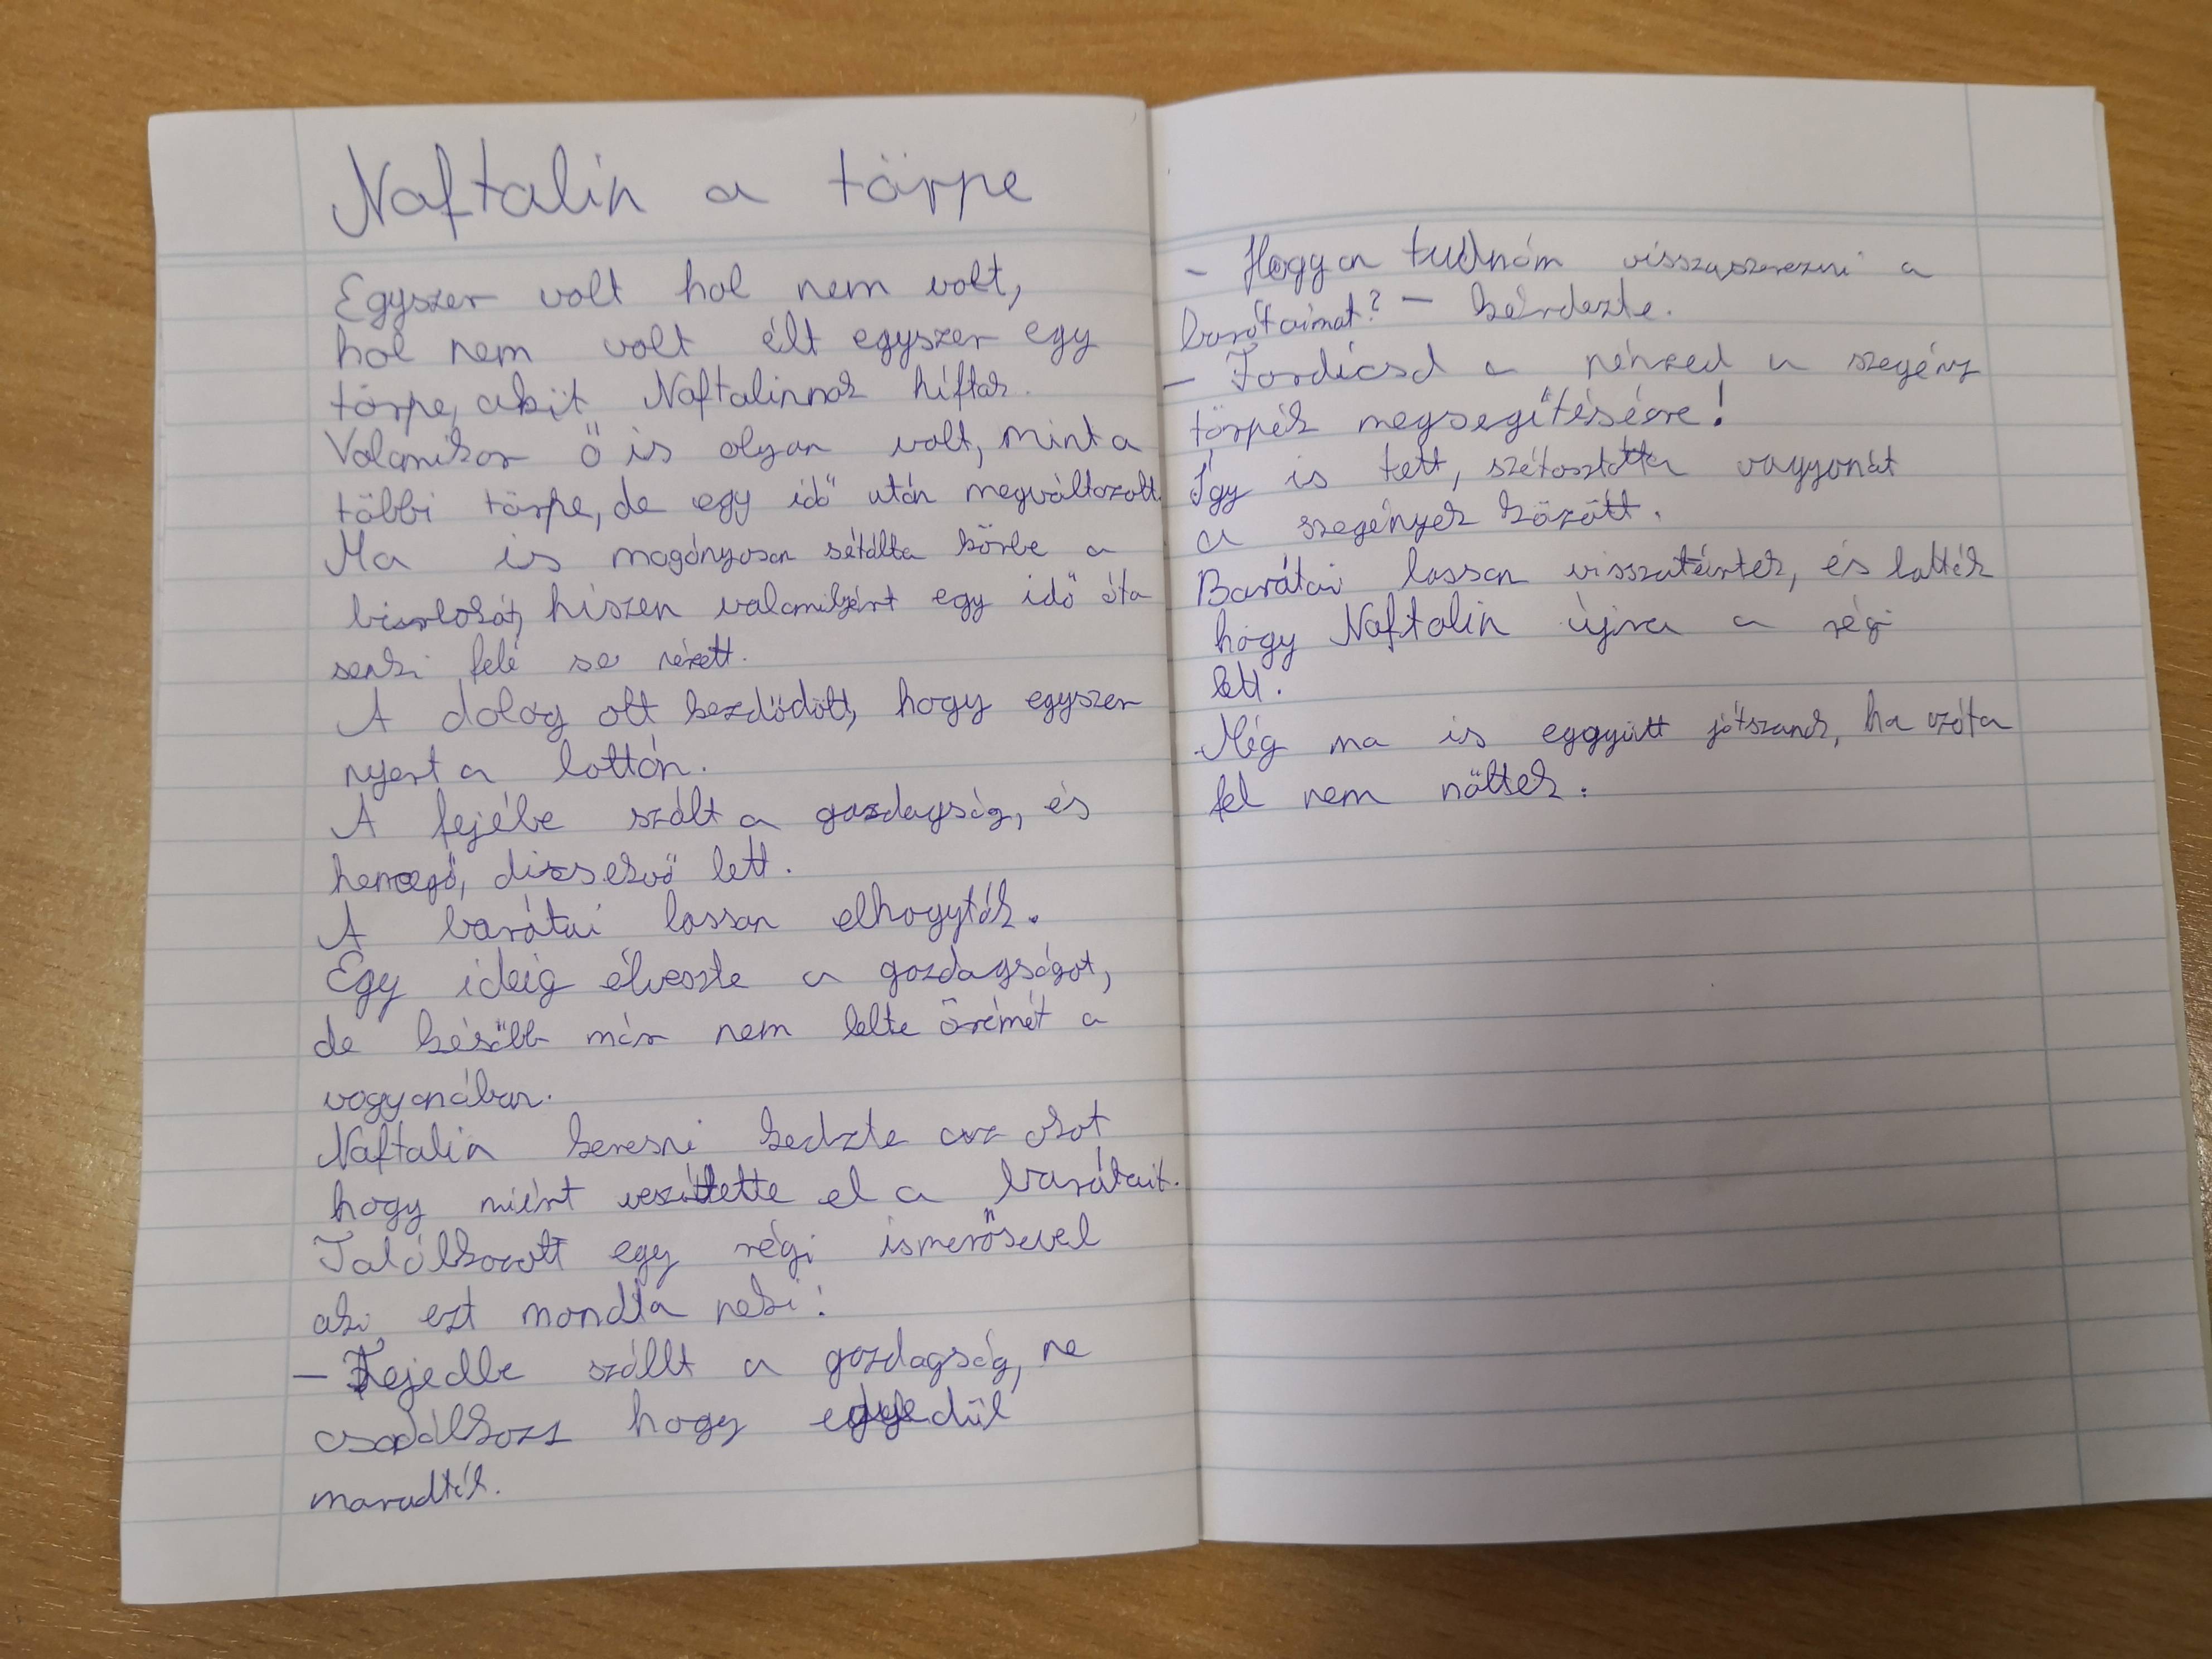 Naftalin a törpe
Egyszer volt hol nem volt,
hol nem volt élt egyszer egy
törpe, akit Naftalinnak híftak.
Valamikor ő is olyan volt, mint a
többi törpe, de egy idő után megváltozott.
Ma is magányosan sétálta körbe a
birtokát, hiszen valamiért egy idő óta
senki felé se nézett.
A dolog ott kezdődött, hogy egyszer
nyert a lottón.
A fejébe szált a gazdagság, és
hencegő, dicsekvő lett.
A barátai lassan elhagyták.
Egy ideig élvezte a gazdagságot,
de később már nem lelte örömét a
vagyonában.
Naftalin keresni kedzte az okot
hogy miért veszítette el a barátait.
Találkozott egy régi ismerősevel
aki ezt mondta neki:
– Fejedbe szállt a gazdagság, ne
csodálkozz hogy egyedül
maradtál.
– Hogyan tudnám visszaszerezni a
barátaimat? – kérdezte.
– Fordícsd a pénzed a szegény
törpék megsegítésére!
Így is tett, szétosztotta vagyonát
a szegények között.
Barátai lassan visszatértek, és latták
hogy Naftalin újra a régi
lett.
Még ma is eggyütt játszanak, ha azóta
fel nem nőttek.